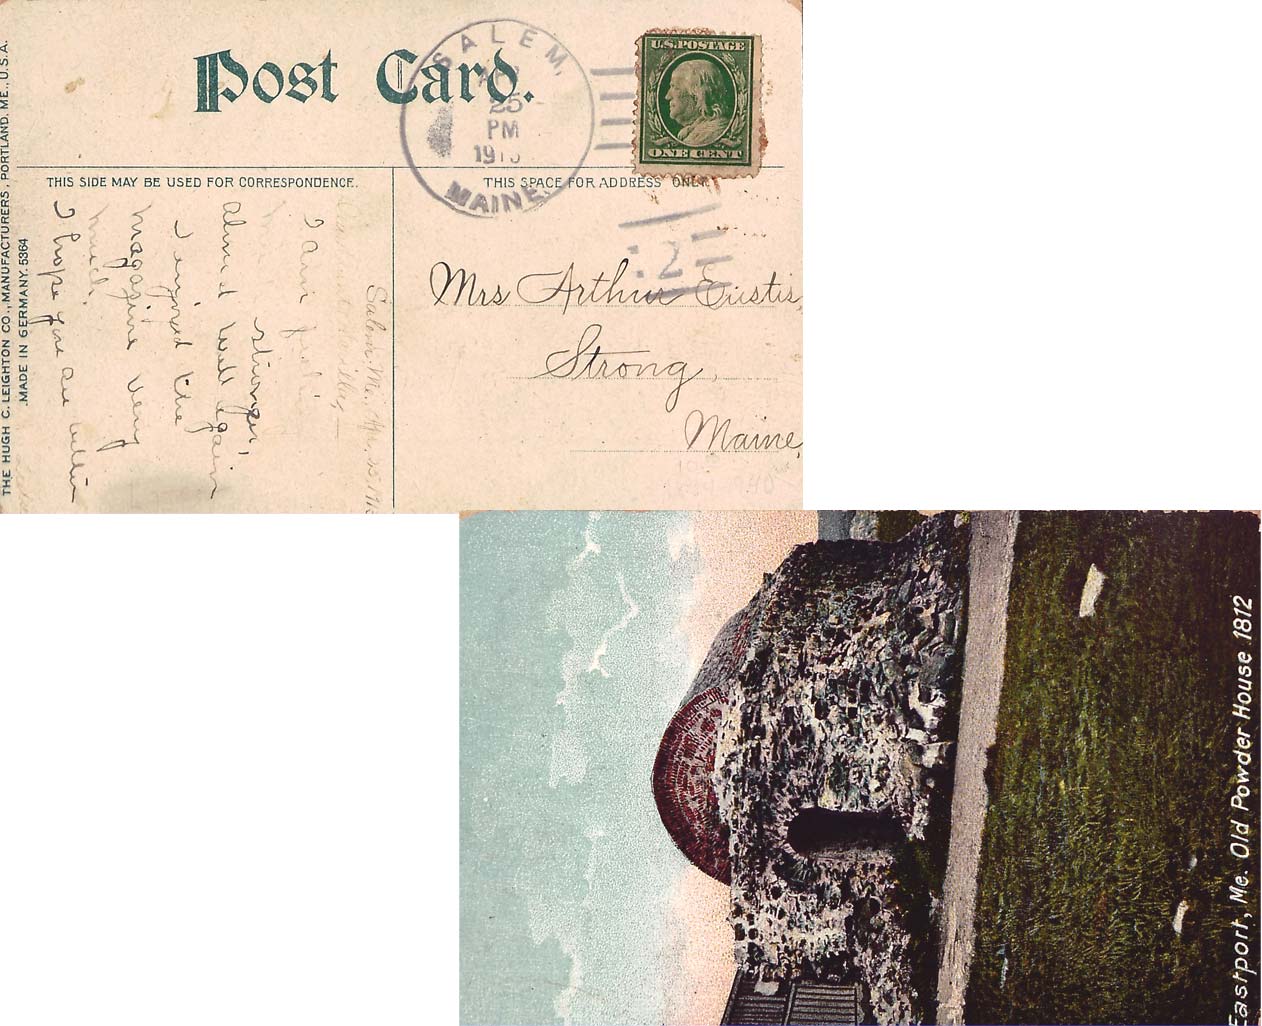 Post Card.
SALEM,
25
PM
191
MAINE.
U.S. POSTAGE
ONE CENT
THIS SIDE MAY BE USED FOR CORRESPONDENCE.
THIS SPACE FOR ADDRESS ONLY.
2
Mrs Arthur Eustis,
Strong,
Maine,
Salem Me., Apr, 25 191
I am feeling
stronger,
almost well again
I enjoyed the
magazine very
much.
I hope you are well
THE HUGH C. LEIGHTON CO., MANUFACTURERS, PORTLAND, ME., U.S.A.
MADE IN GERMANY. 5364
Eastport, Me. Old Powder House 1812